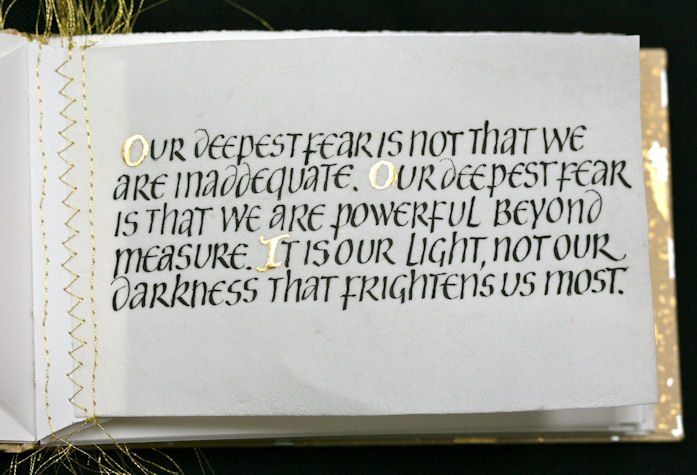 Our deepest fear is not that we
are inadequate. Our deepest fear
is that we are powerful beyond
measure. It is our light, not our
darkness that frightens us most.